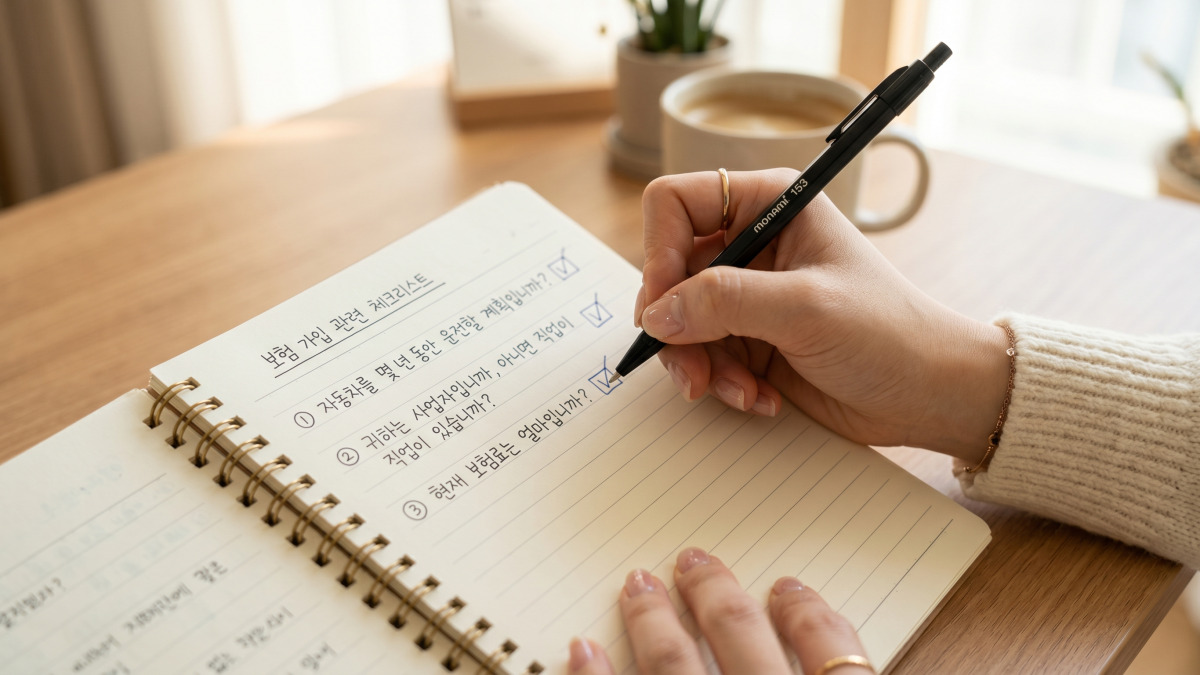 보험 가입 관련 체크리스트
① 자동차를 몇 년 동안 운전할 계획입니까?
② 귀하는 사업자입니까, 아니면 직업이
직업이 있습니까?
③ 현재 보험료는 얼마입니까?
monami 153